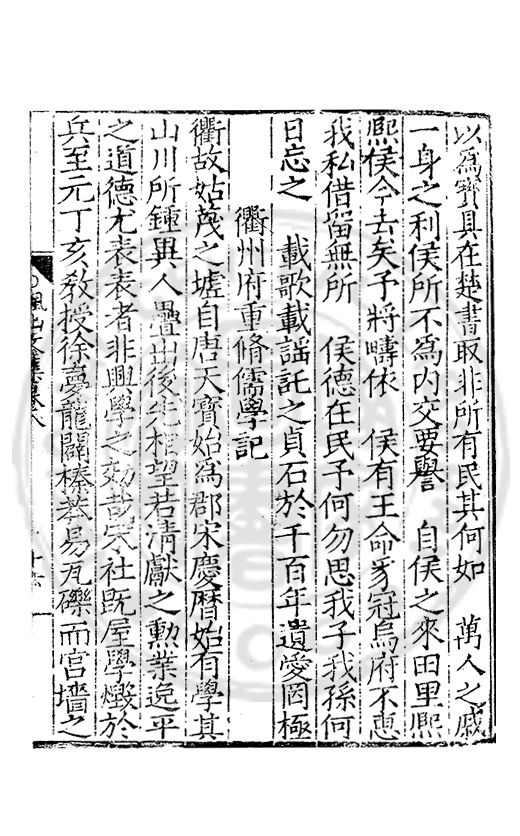 以為寳具在楚書取非所有民其何如　萬人之戚
一身之利侯所不為内交要譽　自侯之來田里熙
熙侯今去矣予將疇依　侯有王命豸冠烏府不惠
我私借留無所　侯德在民予何勿思我子我孫何
日忘之　載歌載謡託之貞石於千百年遺愛罔極
衢州府重脩儒學記
衢故姑蔑之墟自唐天寳始為郡宋慶曆始有學其
山川所鍾異人疊出後先相望若清獻之勲業逸平
之道德尤表表者非興學之効哉宋社既屋學燬於
兵至元丁亥教授徐夢龍闢榛莽易瓦礫而宫墻之